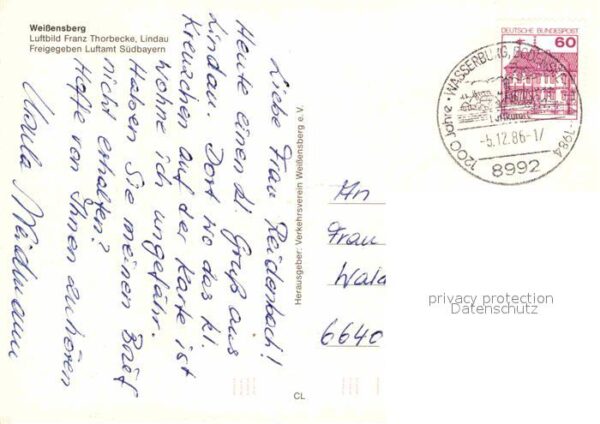 Weißensberg
Luftbild Franz Thorbecke, Lindau
Freigegeben Luftamt Südbayern
Liebe Frau Reidenbach!
Heute einen kl. Gruß aus
Lindau. Dort wo das kl.
Kreuzchen auf der Karte ist
wohne ich ungefähr.
Haben Sie meinen Brief
nicht erhalten?
Hoffe von Ihnen zu hören
Ursula
Herausgeber: Verkehrsverein Weißensberg e. V.
CL
DEUTSCHE BUNDESPOST
60
1200 Jahre · WASSERBURG
784-1984
-5.12.86-1
8992
An
Frau
Wald
6640
privacy protection
Datenschutz